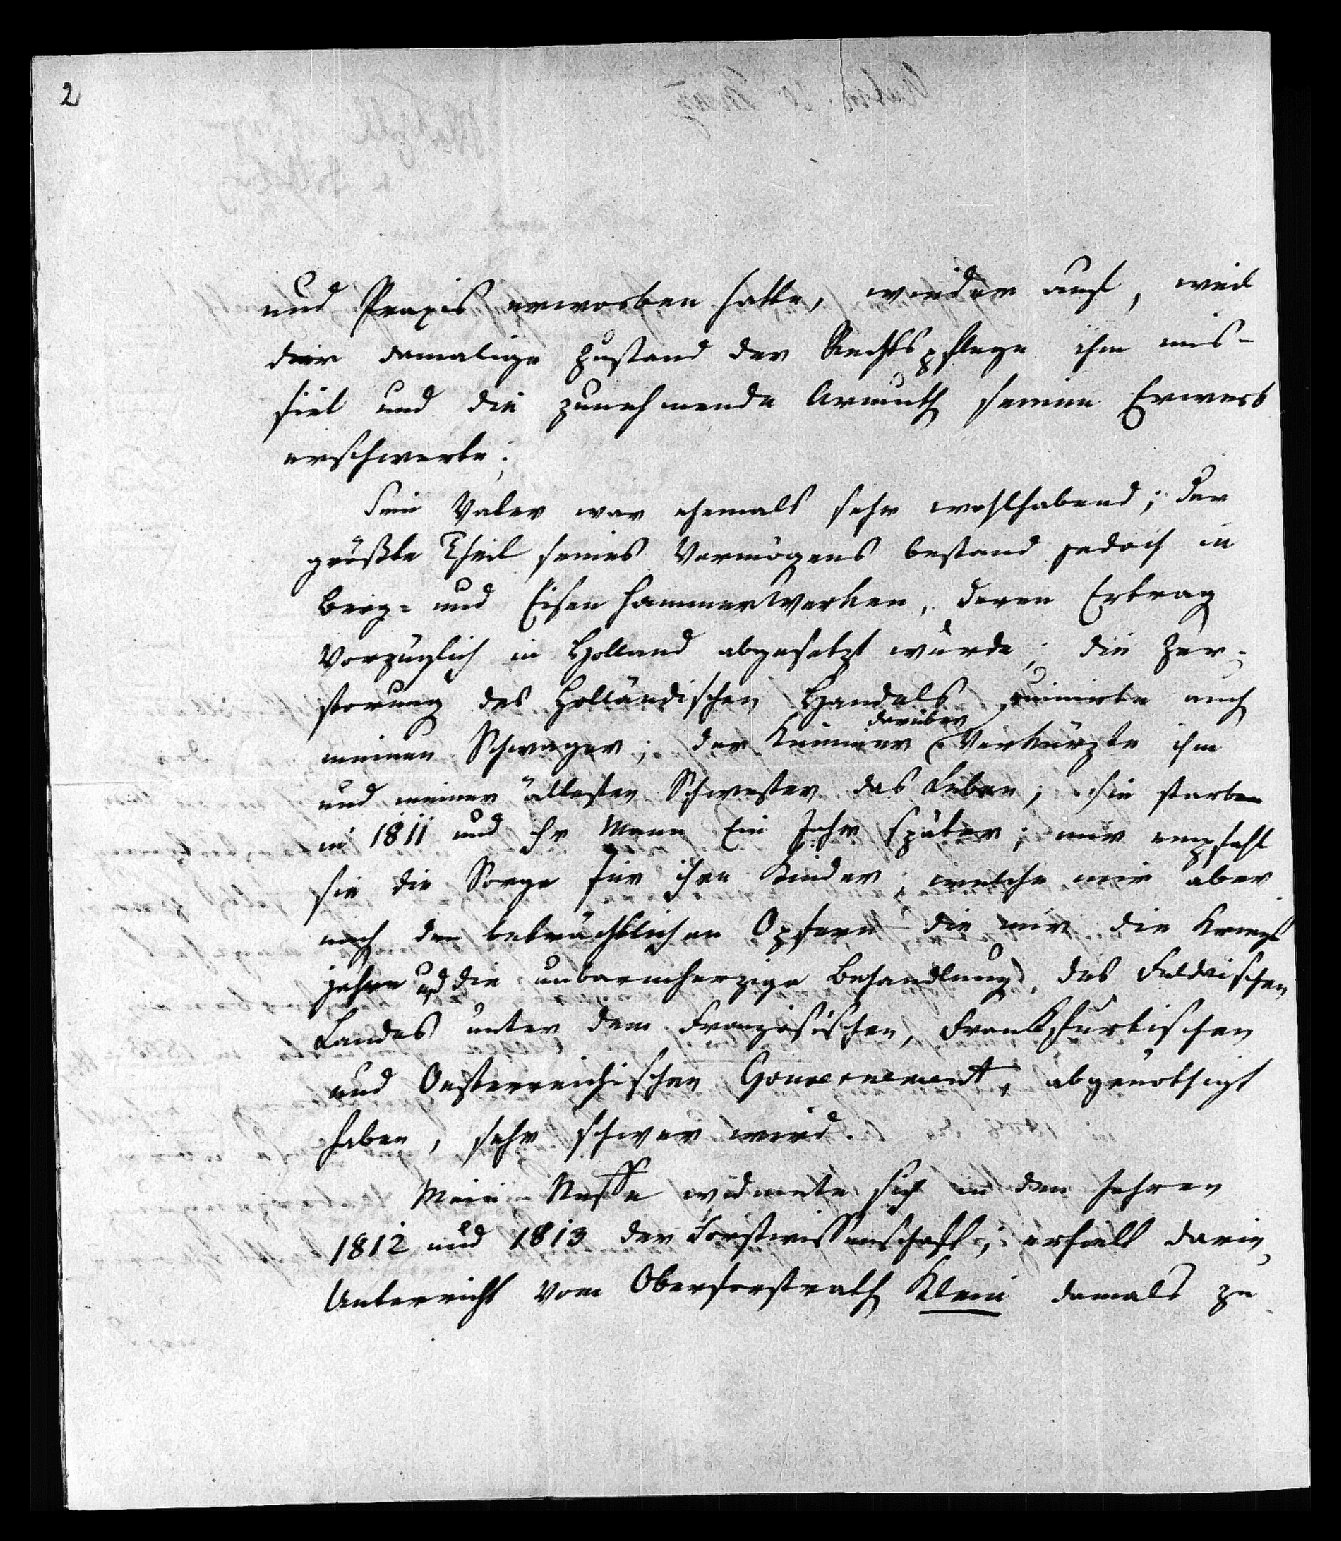 2
und Praxis erworben hatte, wieder auf, weil
der damalige Zustand der Rechtspflege ihm mis-
fiel und die zunehmende Armuth seinen Erwerb
erschwerte.
Sein Vater war ehemals sehr wohlhabend; der
größte Theil seines Vermögens bestand jedoch in
Berg- und Eisenhammerwerken, deren Ertrag
vorzüglich in Holland abgesetzt wurde; die Zer-
störung des Holländischen Handels ruinirte auch
meinen Schwager; der Kummer darüber verkürzte ihm
und meiner ältesten Schwester das Leben; sie starben
in 1811 und ihr Mann Ein Jahr später; mir empfahl
sie die Sorge für ihre Kinder, welche mir aber
nach den beträchtlichen Opfern die mir die Kriegs
jahre und die unbarmherzige Behandlung des Fuldaischen
Landes unter dem Französischen, Frankfurtischen
und Oesterreichischen Gouvernement, abgenöthigt
haben, sehr schwer wird.
Mein Neffe widmete sich in den Jahren
1812 und 1813 der Forstwissenschaft, erhielt darin
Unterricht vom Oberforstrath Klein damals zu